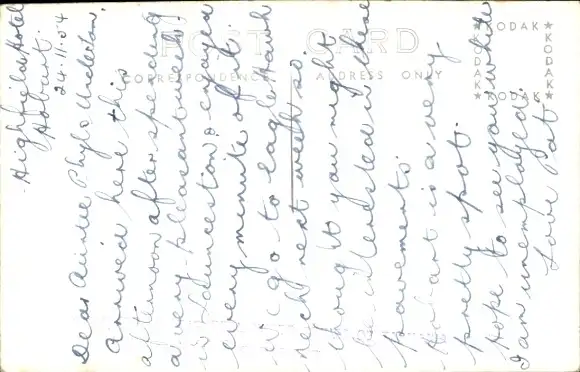 POST CARD
CORRESPONDENCE ADDRESS ONLY
KODAK KODAK KODAK KODAK
Highfield Hotel
Hobart.
24.11.54
Dear Auntie Phyl &
arrived here this
afternoon after spending
a very pleasant week
in Launceston & enjoyed
every minute of it.
We go to Eagle Hawk
neck next week so
thought you might
be interested in these
pavements.
Hobart is a very
pretty spot.
Hope to see you while
I am unemployed.
Love Pat.